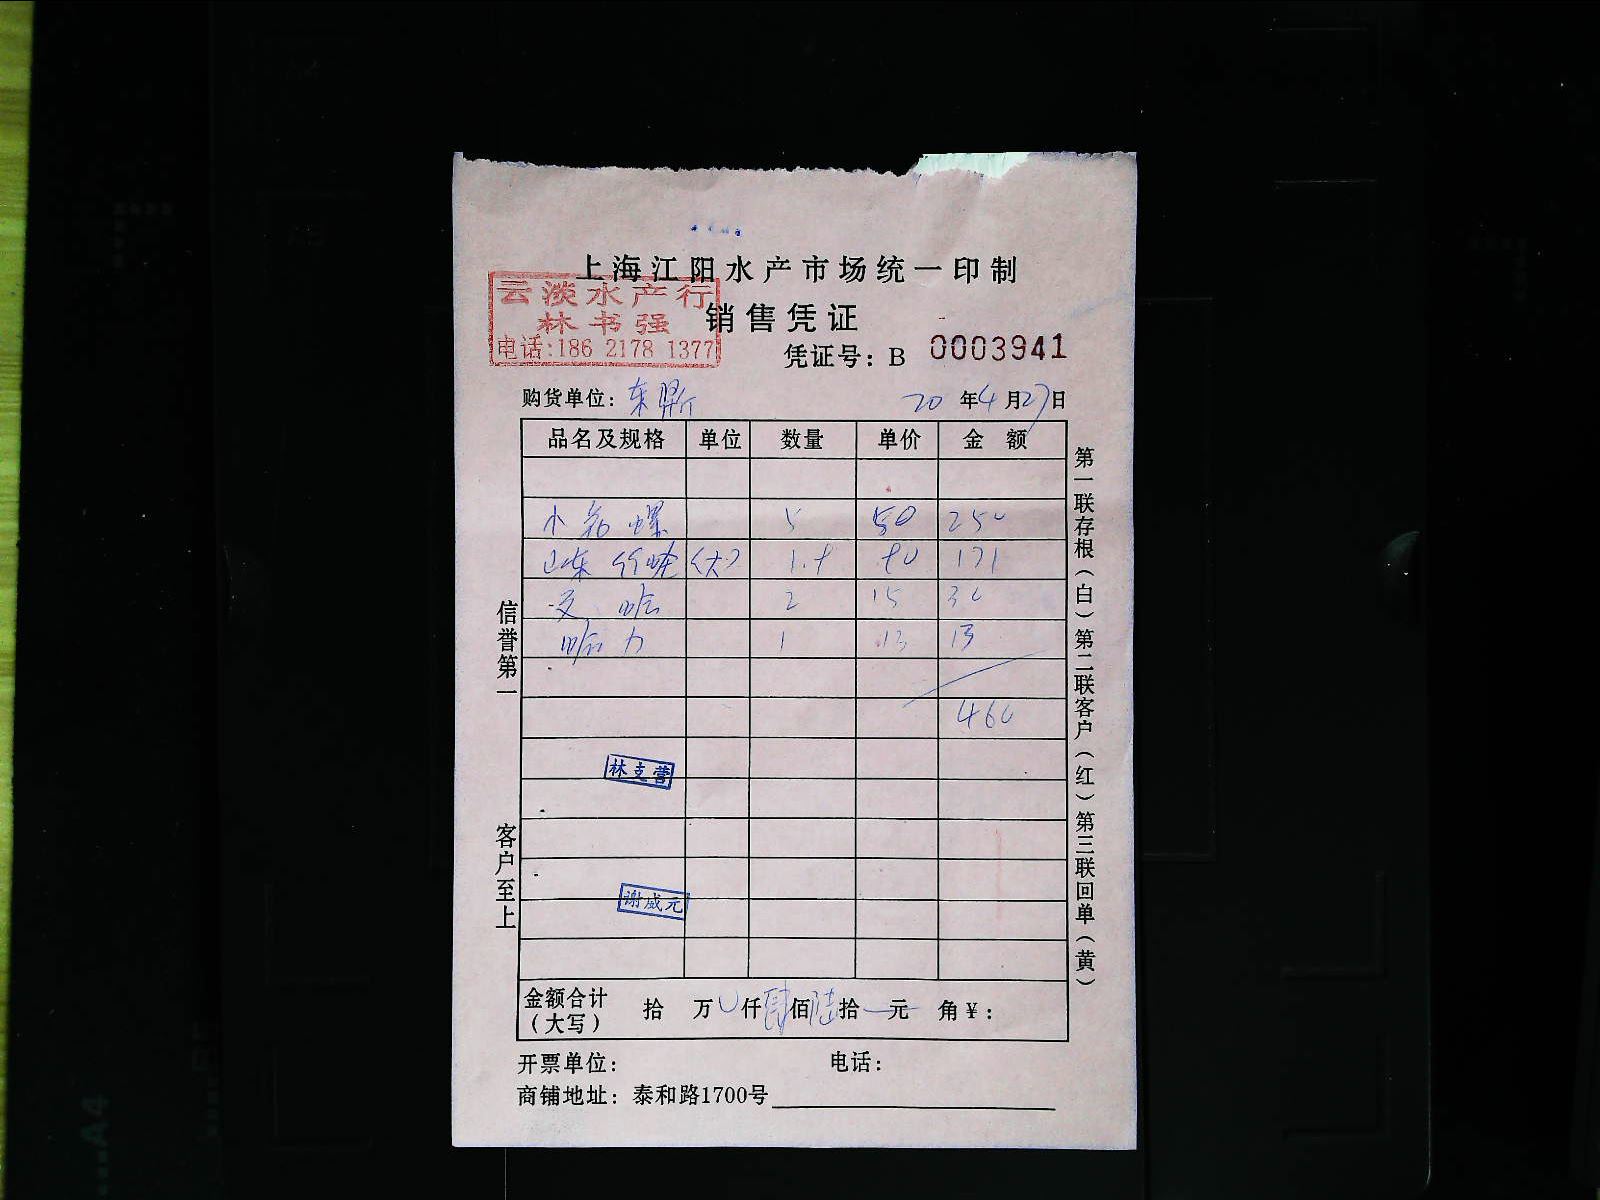 上海江阳水产市场统一印制
云淡水产行
林书强
电话:186 2178 1377
销售凭证
凭证号: B 0003941
购货单位: 东 20年4月27日
品名及规格 单位 数量 单价 金额
小 螺 5 50 250
山东 (大) 1.9 90 171
哈 2 15 30
哈 力 1 13 13
460
林支营
谢咸元
金额合计(大写) 拾 万 仟 肆 佰 陆 拾 元 角 ¥:
开票单位: 电话:
商铺地址: 泰和路1700号
信誉第一
客户至上
第一联存根(白)第二联客户(红)第三联回单(黄)